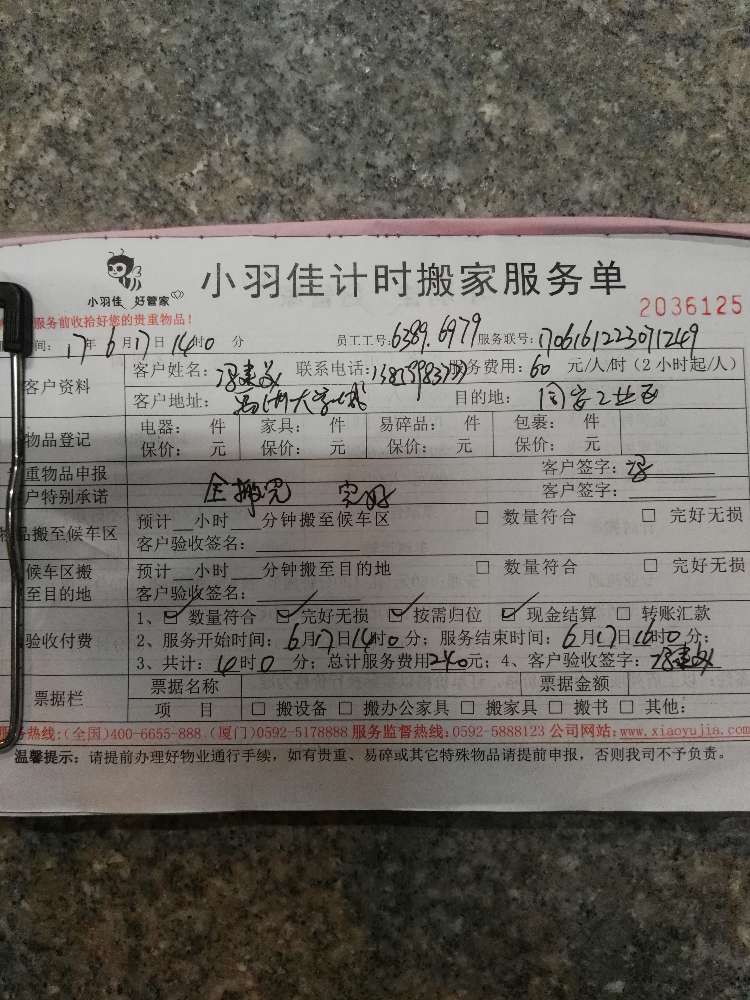 小羽佳 好管家
小羽佳计时搬家服务单
2036125
服务前收拾好您的贵重物品！
间：17年6月17日14时0分 员工工号：6389.6979 服务联号：1706161223071249
客户资料
客户姓名： 联系电话： 服务费用：60 元/人/时（2小时起/人）
客户地址： 目的地：
物品登记
电器： 件 家具： 件 易碎品： 件 包裹： 件
保价： 元 保价： 元 保价： 元 保价： 元
重物品申报 客户签字：冯
户特别承诺 全搬完 完好 客户签字：
物品搬至候车区
预计__小时__分钟搬至候车区 □ 数量符合 □ 完好无损
客户验收签名：
候车区搬至目的地
预计__小时__分钟搬至目的地 □ 数量符合 □ 完好无损
客户验收签名：
验收付费
1、☑ 数量符合 ☑ 完好无损 ☑ 按需归位 ☑ 现金结算 □ 转账汇款
2、服务开始时间：6月17日14时0分；服务结束时间：6月17日16时0分；
3、共计：4时0分；总计服务费用240元；4、客户验收签字：冯建义
票据栏
票据名称 票据金额
项 目 □ 搬设备 □ 搬办公家具 □ 搬家具 □ 搬书 □ 其他：
服务热线：（全国）400-6655-888．（厦门）0592-5178888 服务监督热线：0592-5888123 公司网站：www.xiaoyujia.com
温馨提示：请提前办理好物业通行手续，如有贵重、易碎或其它特殊物品请提前申报，否则我司不予负责。